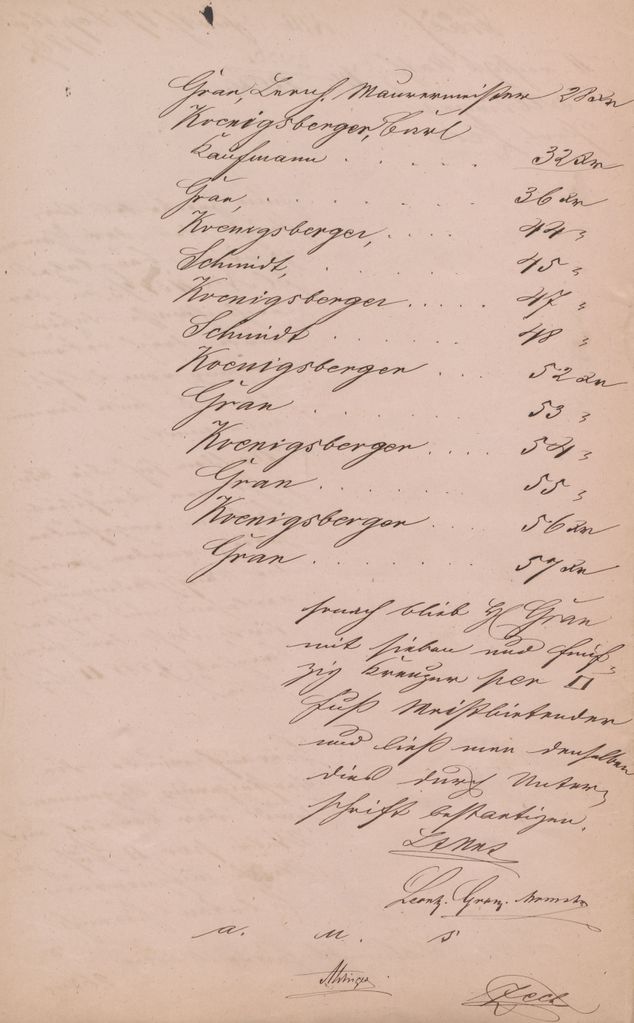 Gran, Leonh. Maurermeister 28 Kr
Koenigsberger, Carl
Kaufmann . . . . . 32 Kr
Gran, . . . . . . 36 Kr
Koenigsberger, . . . . 44 "
Schmidt, . . . . . 45 "
Koenigsberger . . . . . 47 "
Schmidt . . . . . 48 "
Koenigsberger . . . . 52 Kr
Gran . . . . . . 53 "
Koenigsberger . . . . 54 "
Gran . . . . . . 55 "
Koenigsberger . . . . 56 Kr
Gran . . . . . . 57 Kr
sonach blieb H Gran
mit sieben und fünf-
zig Kreuzer per □
Fuß Meistbietender
und ließ man denselben
dies durch Unter-
schrift bestaetigen.
Leonh. Gran,
a. u. s